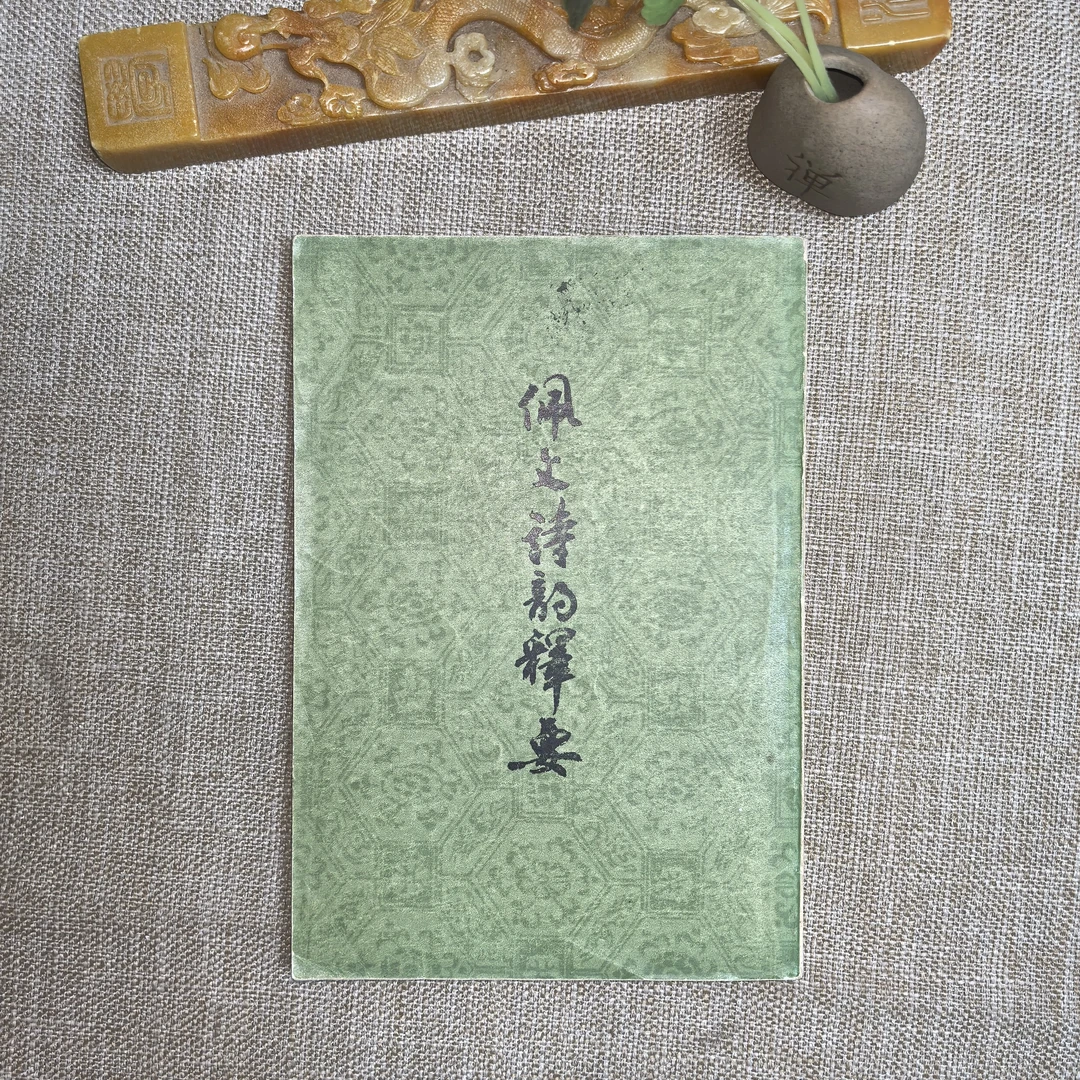 佩文詩韵釋要
禅